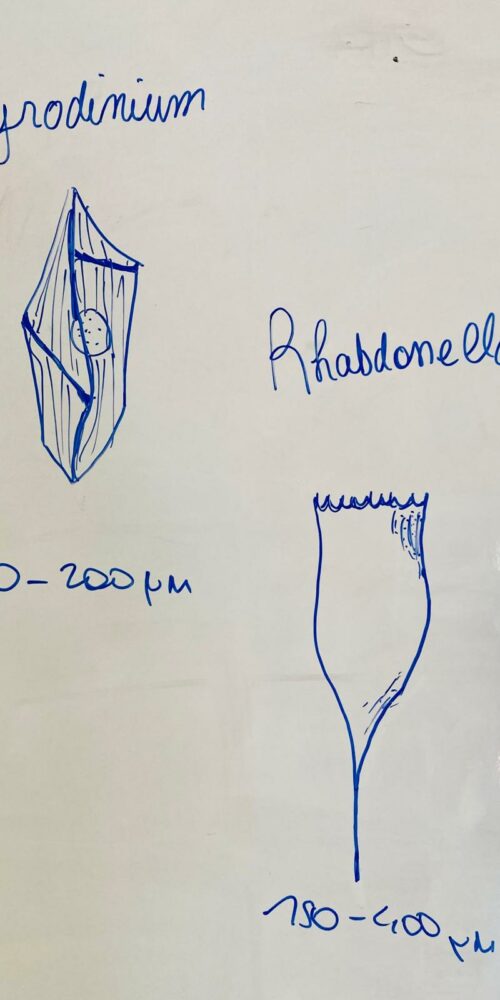 yrodinium
Rhabdonella
0-200 µm
150-400 µm